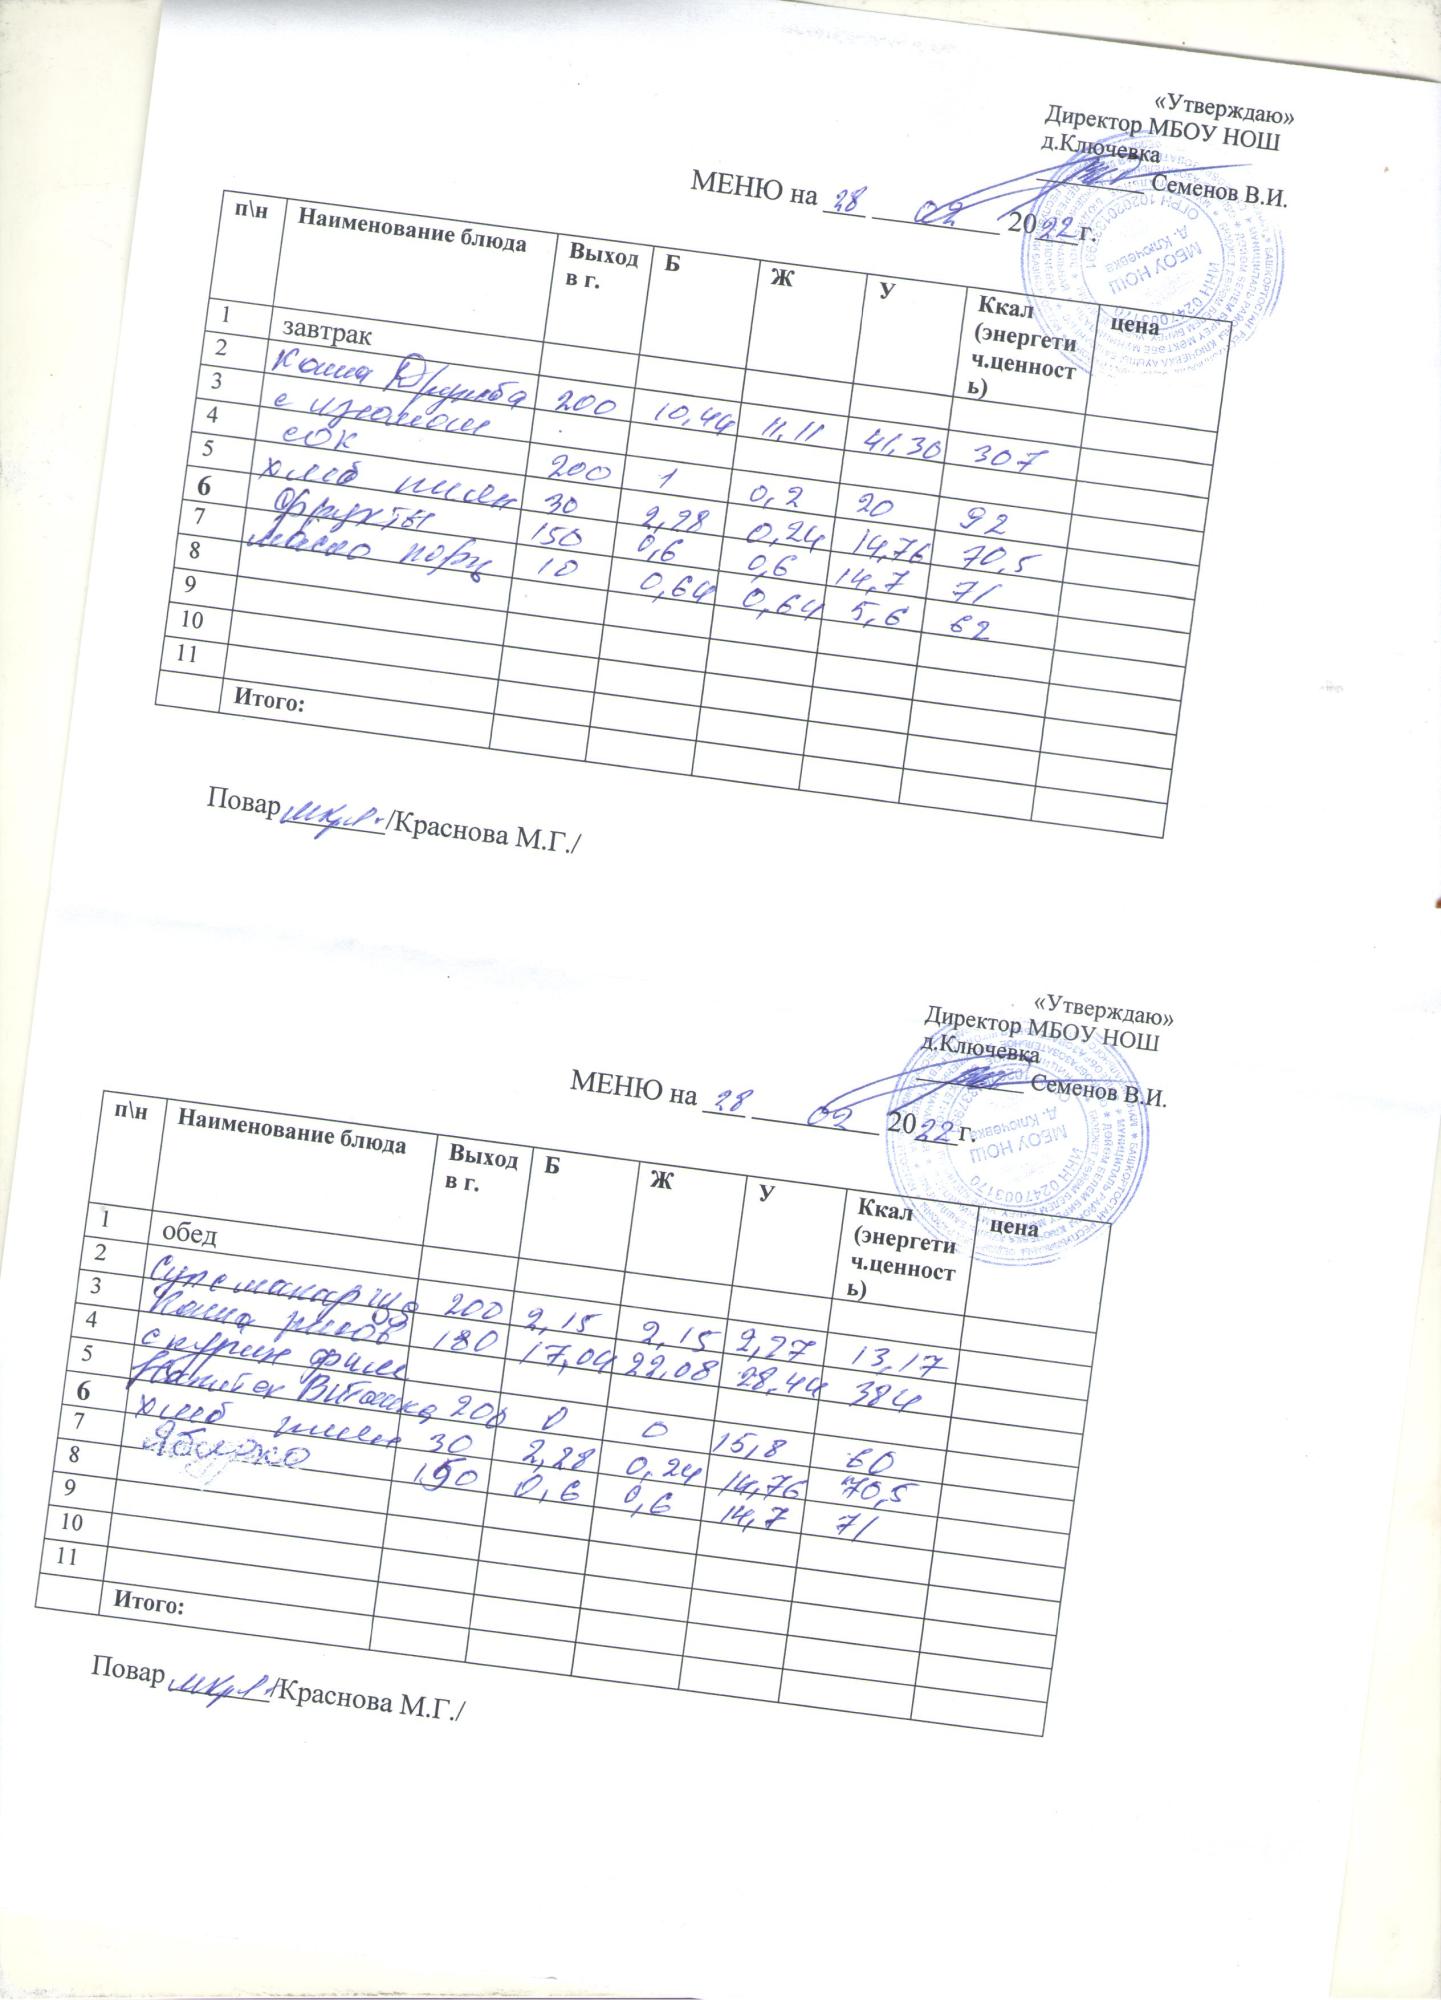 «Утверждаю»
Директор МБОУ НОШ
д.Ключевка
Семенов В.И.
МЕНЮ на 28 02 2022г.
п\н Наименование блюда Выход в г. Б Ж У Ккал (энергетич.ценность) цена
1 завтрак
2 Каша Дружба 200 10,44 11,11 41,30 307
3 с изюмом
4 сок 200 1 0,2 20 92
5 хлеб пшен 30 2,28 0,24 14,76 70,5
6 Фрукты 150 0,6 0,6 14,7 71
7 Масло порц 10 0,64 0,64 5,6 62
8
9
10
11
Итого:
Повар /Краснова М.Г./
«Утверждаю»
Директор МБОУ НОШ
д.Ключевка
Семенов В.И.
МЕНЮ на 28 02 2022г.
п\н Наименование блюда Выход в г. Б Ж У Ккал (энергетич.ценность) цена
1 обед
2 Суп с макар 200 2,15 2,15 2,27 13,17
3 Каша рисов 180 17,04 22,08 28,44 384
4 с курин филе
5 Напиток Виташка 200 0 0 15,8 60
6 хлеб пшен 30 2,28 0,24 14,76 70,5
7 Яблоко 150 0,6 0,6 14,7 71
8
9
10
11
Итого:
Повар /Краснова М.Г./
МБОУ НОШ
д. Ключевка
ИНН 0247003170